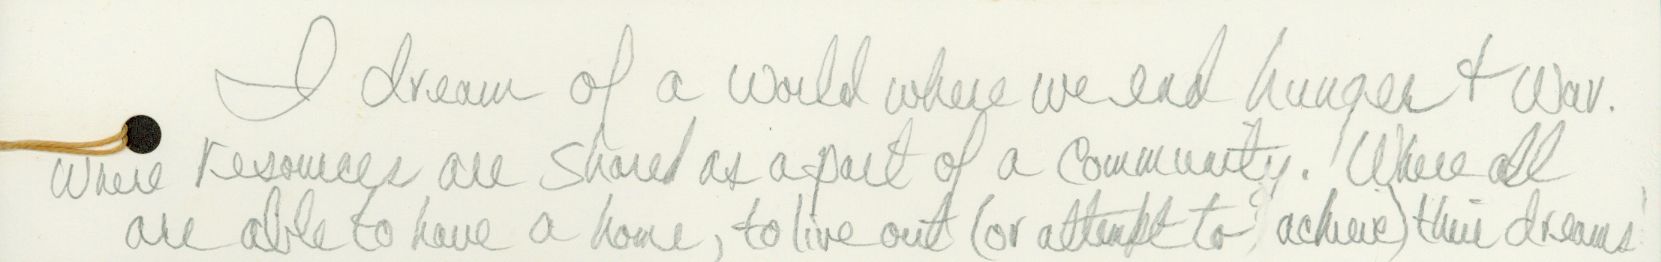 I dream of a world where we end hunger & war.
where resources are shared as a part of a community. Where all
are able to have a home, to live out (or attempt to achieve) their dreams!